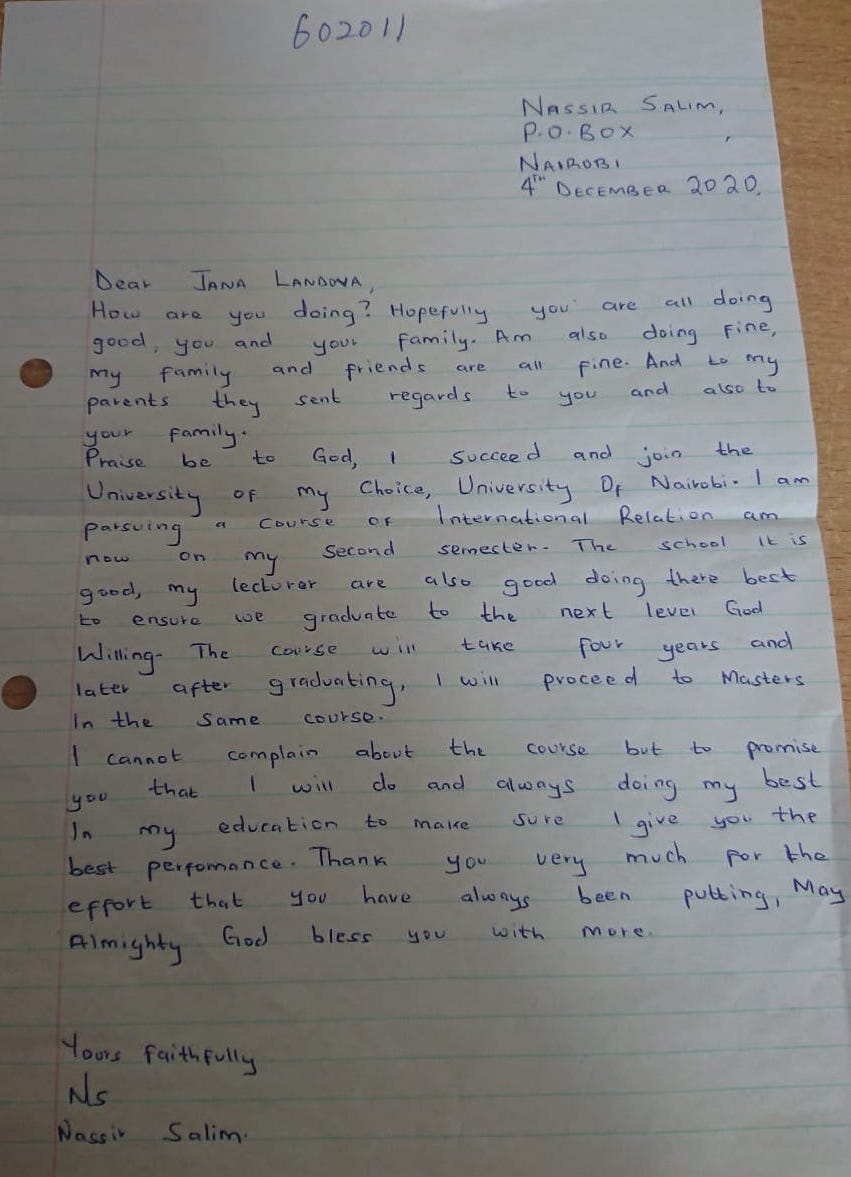 602011
NASSIR SALIM,
P.O. BOX ,
NAIROBI
4TH DECEMBER 2020.
Dear JANA LANDOVA,
How are you doing? Hopefully you are all doing
good, you and your family. Am also doing fine,
my family and friends are all fine. And to my
parents they sent regards to you and also to
your family.
Praise be to God, I succeed and join the
University of my Choice, University Of Nairobi. I am
parsuing a course of International Relation am
now on my second semester. The school it is
good, my lecturer are also good doing there best
to ensure we graduate to the next level God
Willing. The course will take four years and
later after graduating, I will proceed to Masters
In the same course.
I cannot complain about the course but to promise
you that I will do and always doing my best
In my education to make sure I give you the
best perfomance. Thank you very much for the
effort that you have always been putting, May
Almighty God bless you with more.
Yours faithfully
Ns
Nassir Salim.